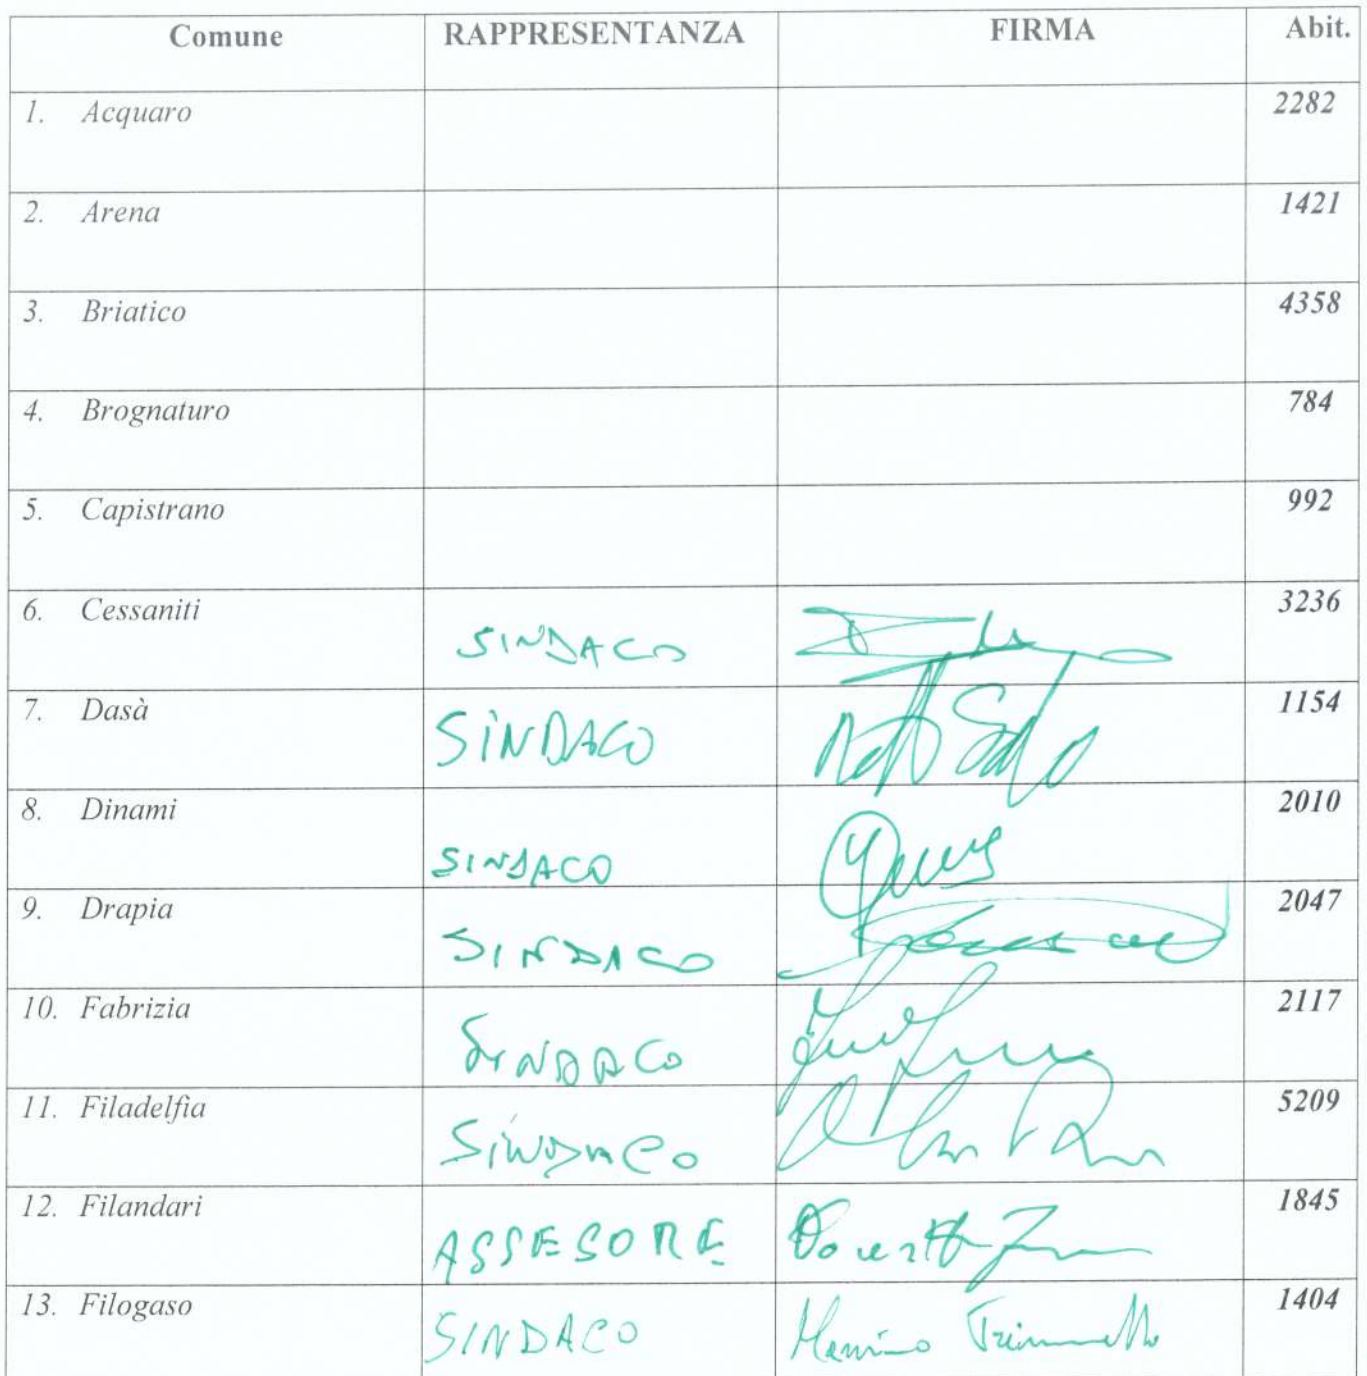 Comune RAPPRESENTANZA FIRMA Abit.
1. Acquaro 2282
2. Arena 1421
3. Briatico 4358
4. Brognaturo 784
5. Capistrano 992
6. Cessaniti SINDACO 3236
7. Dasà SINDACO 1154
8. Dinami SINDACO 2010
9. Drapia SINDACO 2047
10. Fabrizia SINDACO 2117
11. Filadelfia SINDACO 5209
12. Filandari ASSESORE 1845
13. Filogaso SINDACO 1404